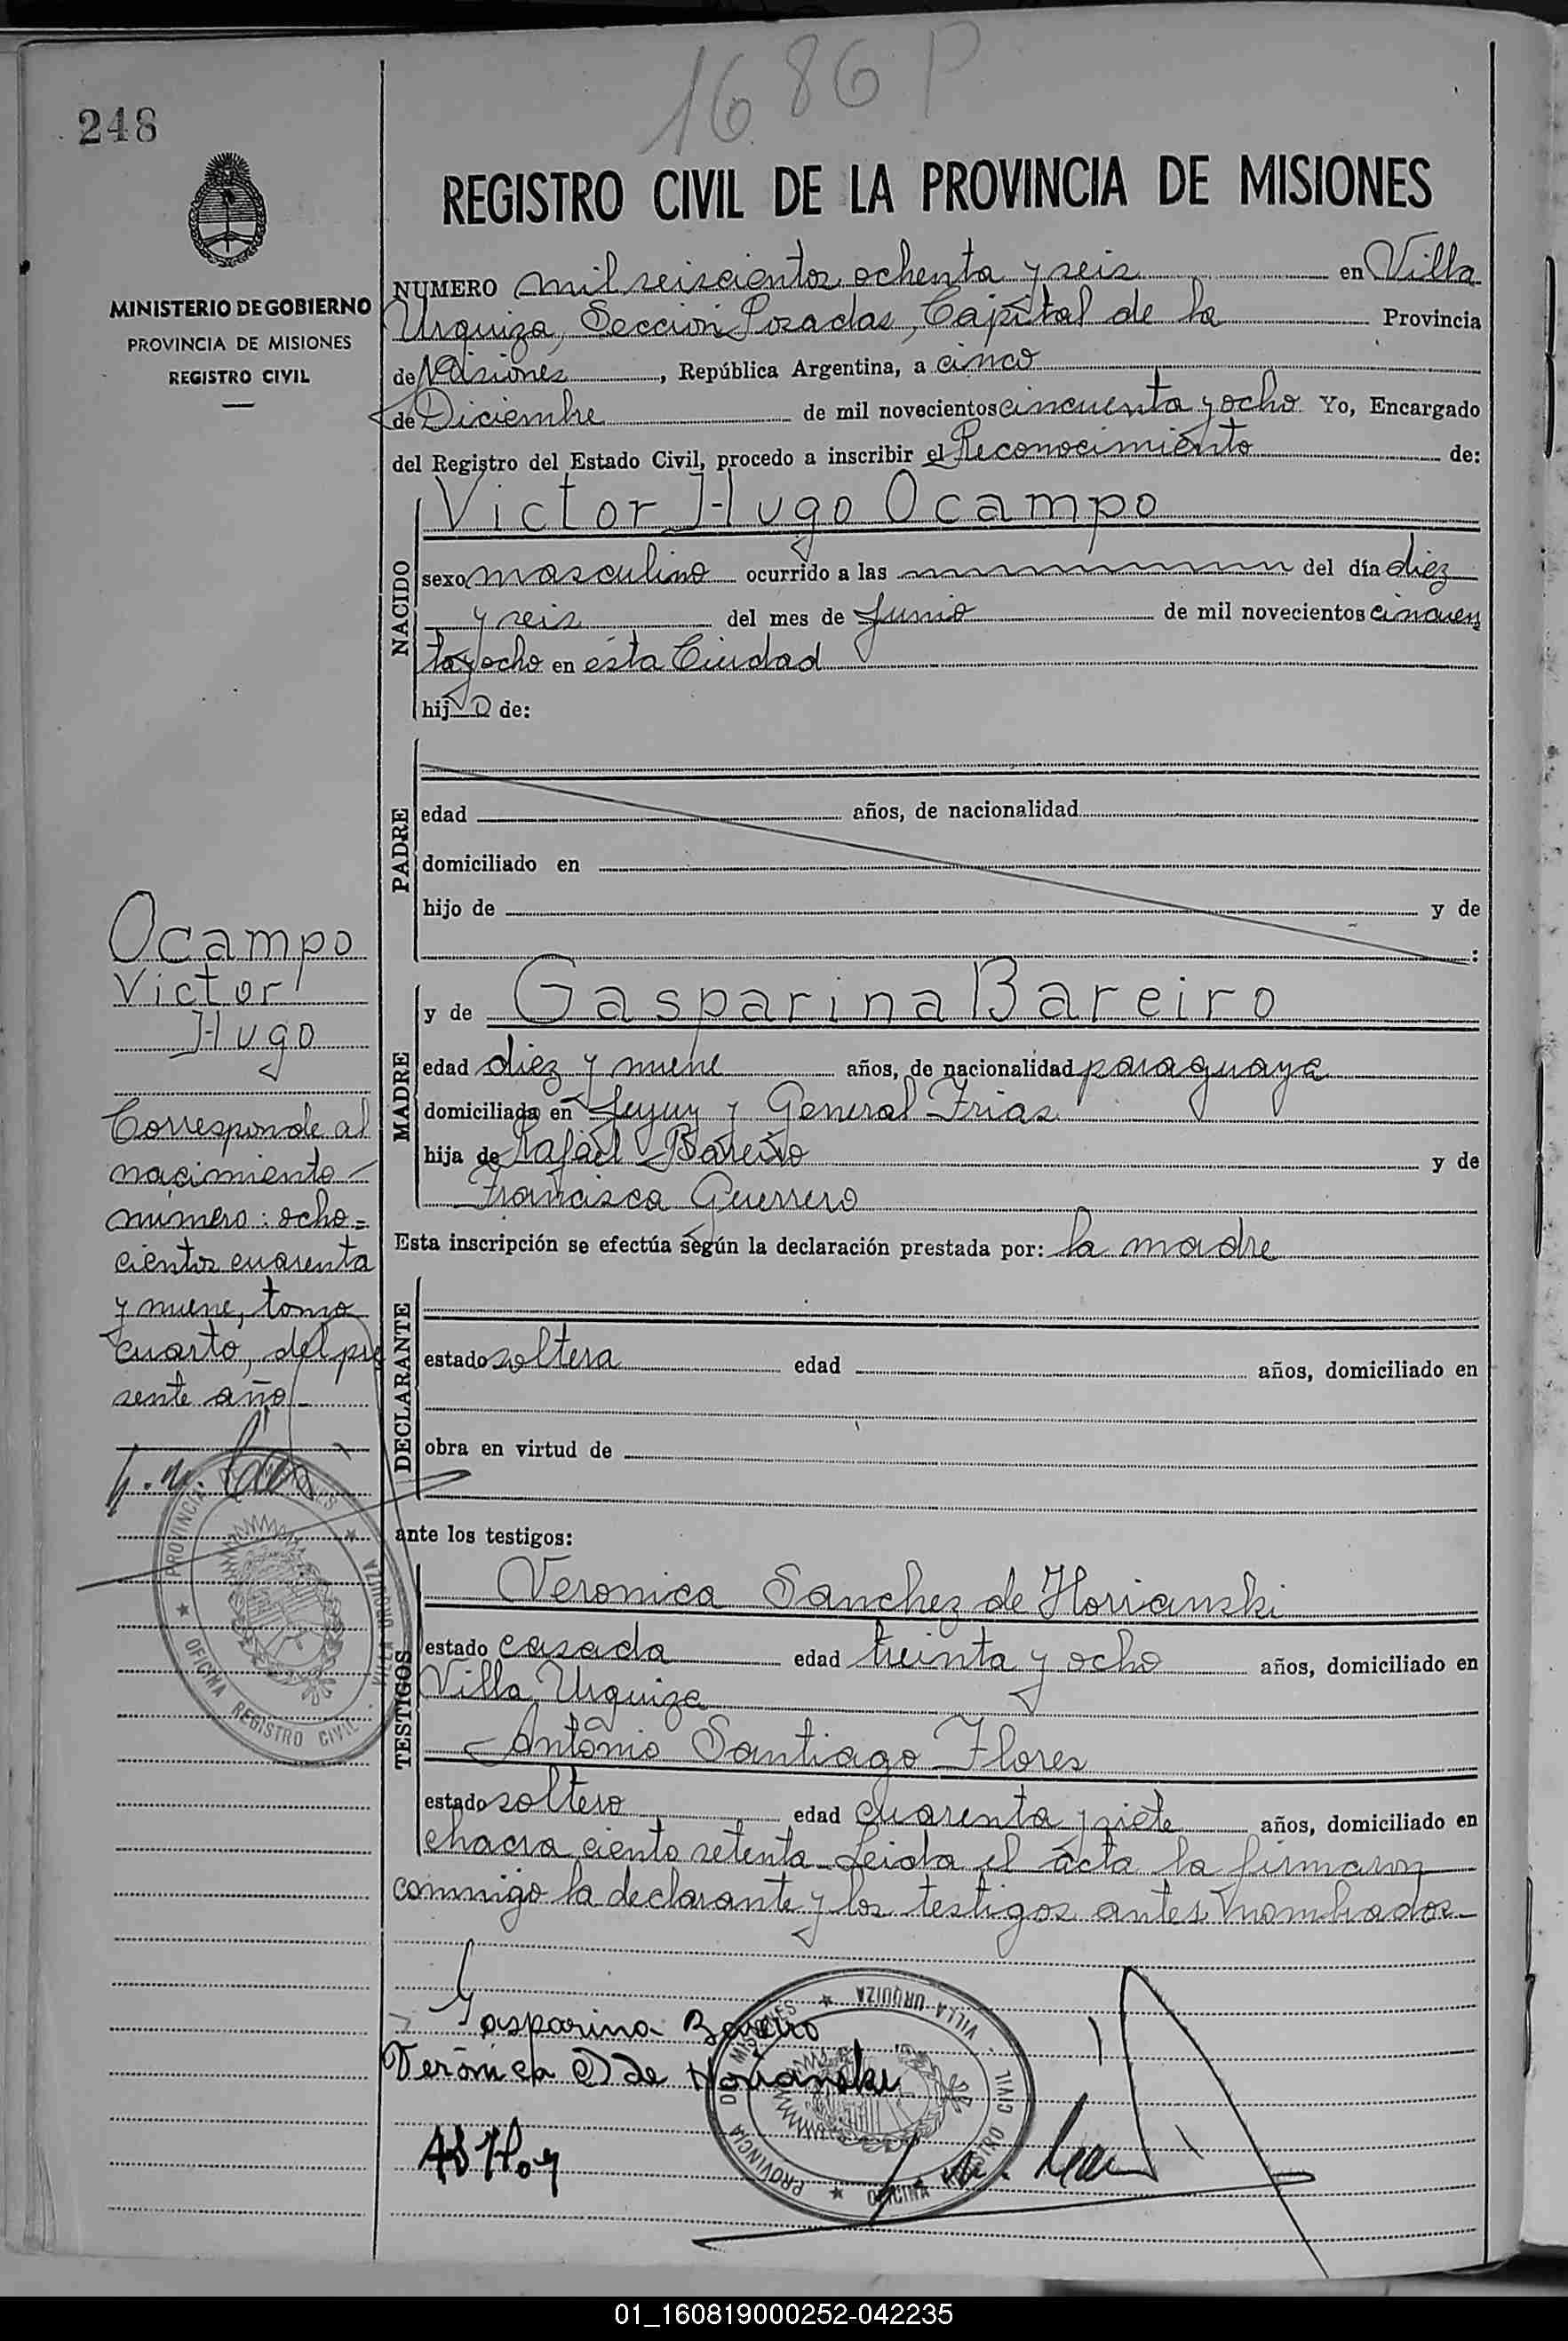 1686 P
248
REGISTRO CIVIL DE LA PROVINCIA DE MISIONES
MINISTERIO DE GOBIERNO
PROVINCIA DE MISIONES
REGISTRO CIVIL
NUMERO mil seiscientos ochenta y seis en Villa
Urquiza, Sección Posadas, Capital de la Provincia
de Misiones, República Argentina, a cinco
de Diciembre de mil novecientos cincuenta y ocho Yo, Encargado
del Registro del Estado Civil, procedo a inscribir el Reconocimiento de:
NACIDO
Victor Hugo Ocampo
sexo masculino ocurrido a las del día diez
y seis del mes de Junio de mil novecientos cincuen
ta y ocho en ésta Ciudad
hijo de:
PADRE
edad años, de nacionalidad
domiciliado en
hijo de y de
:
MADRE
y de Gasparina Bareiro
edad diez y nueve años, de nacionalidad paraguaya
domiciliada en Jujuy y General Frias
hija de Rafael Bareiro y de
Francisca Guerrero
Esta inscripción se efectúa según la declaración prestada por: la madre
DECLARANTE
estado soltera edad años, domiciliado en
obra en virtud de
ante los testigos:
TESTIGOS
Veronica Sanchez de Horianski
estado casada edad treinta y ocho años, domiciliado en
Villa Urquiza
Antonio Santiago Flores
estado soltero edad cuarenta y siete años, domiciliado en
chacra ciento setenta. Leida el acta la firmaron
conmigo la declarante y los testigos antes nombrados.-
Ocampo
Victor
Hugo
Corresponde al
nacimiento
número: ocho=
cientos cuarenta
y nueve, tomo
cuarto, del pre
sente año.-
PROVINCIA MISIONES ★ VILLA URQUIZA ★ OFICINA REGISTRO CIVIL
Gasparina Bareiro
Verónica de Horianski
PROVINCIA D MISIONES ★ VILLA URQUIZA - ★ OFICINA REGISTRO CIVIL
01_160819000252-042235